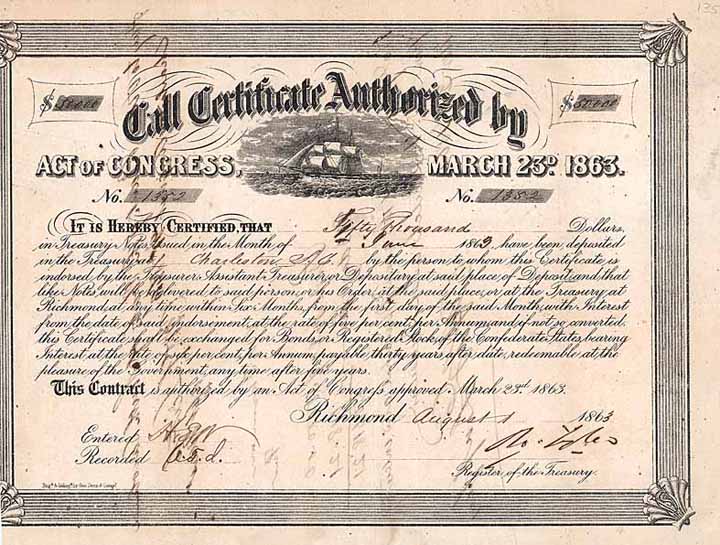 135
$ 50000
$ 50000
Call Certificate Authorized by
ACT OF CONGRESS, MARCH 23D 1863.
No. 1352
No. 1352
IT IS HEREBY CERTIFIED, THAT Fifty Thousand Dollars,
in Treasury Notes, issued in the Month of June 1863, have been deposited
in the Treasury at Charleston S.C. by the person to whom this Certificate is
endorsed by the Treasurer Assistant Treasurer or Depositary at said place of Deposit, and that
like Notes will be delivered to said person, or his Order, at the said place, or at the Treasury, at
Richmond, at any time within Six Months, from the first day of the said Month, with Interest
from the date of said indorsement, at the rate of five per cent, per Annum, and if not so converted,
this Certificate shall be exchanged for Bonds or Registered Stock, of the Confederate States, bearing
Interest at the rate of six per cent, per Annum, payable thirty years after date, redeemable at the
pleasure of the Government, any time after five years.
This Contract is authorized by an Act of Congress approved March 23d 1863.
Richmond August 1 1863
Entered
Recorded
Register of the Treasury.